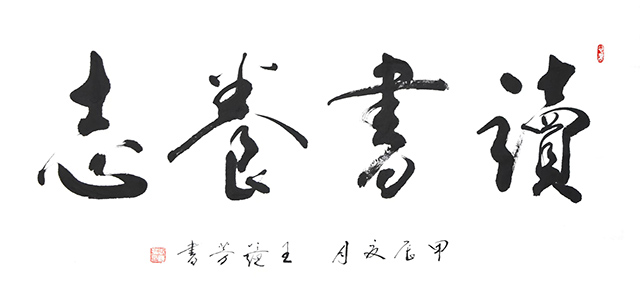 讀書養志
甲辰夏月 王芳書